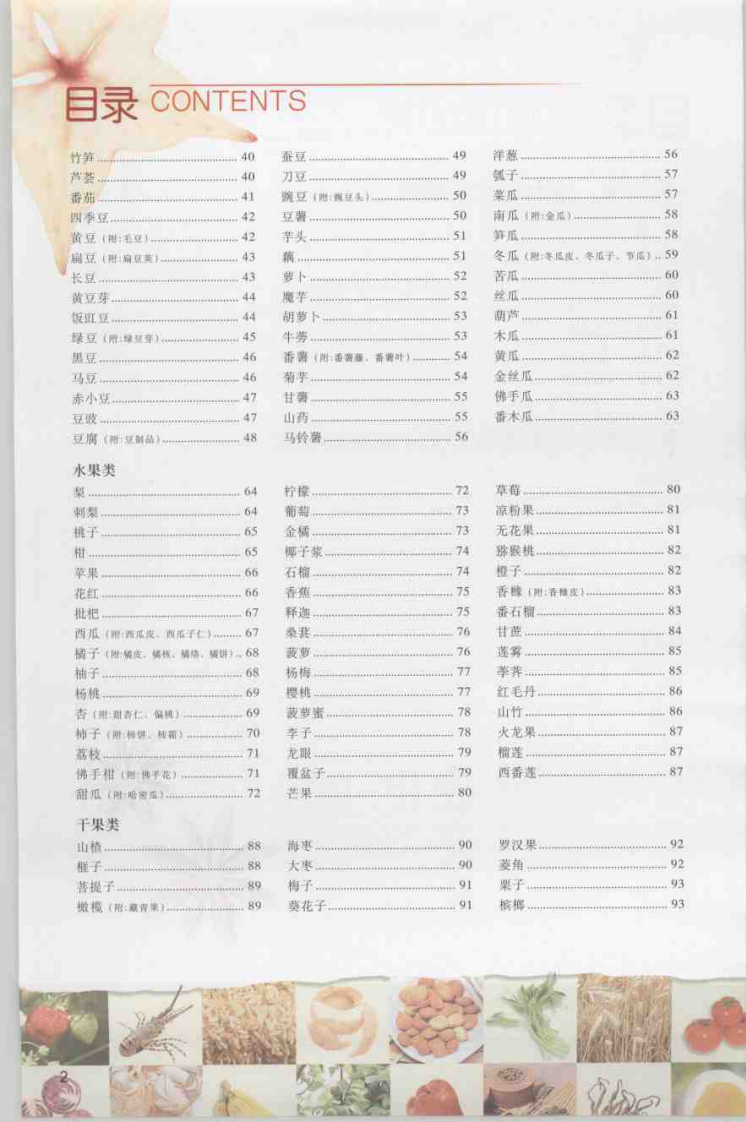 目录 CONTENTS
竹笋 40
芦荟 40
番茄 41
四季豆 42
黄豆（附:毛豆） 42
扁豆（附:扁豆荚） 43
长豆 43
黄豆芽 44
饭豇豆 44
绿豆（附:绿豆芽） 45
黑豆 46
马豆 46
赤小豆 47
豆豉 47
豆腐（附:豆制品） 48
蚕豆 49
刀豆 49
豌豆（附:豌豆头） 50
豆薯 50
芋头 51
藕 51
萝卜 52
魔芋 52
胡萝卜 53
牛蒡 53
番薯（附:番薯藤、番薯叶） 54
菊芋 54
甘薯 55
山药 55
马铃薯 56
洋葱 56
瓠子 57
菜瓜 57
南瓜（附:金瓜） 58
笋瓜 58
冬瓜（附:冬瓜皮、冬瓜子、节瓜） 59
苦瓜 60
丝瓜 60
葫芦 61
木瓜 61
黄瓜 62
金丝瓜 62
佛手瓜 63
番木瓜 63
水果类
梨 64
刺梨 64
桃子 65
柑 65
苹果 66
花红 66
枇杷 67
西瓜（附:西瓜皮、西瓜子仁） 67
橘子（附:橘皮、橘核、橘络、橘饼） 68
柚子 68
杨桃 69
杏（附:甜杏仁、偏桃） 69
柿子（附:柿饼、柿霜） 70
荔枝 71
佛手柑（附:佛手花） 71
甜瓜（附:哈密瓜） 72
柠檬 72
葡萄 73
金橘 73
椰子浆 74
石榴 74
香蕉 75
释迦 75
桑葚 76
菠萝 76
杨梅 77
樱桃 77
菠萝蜜 78
李子 78
龙眼 79
覆盆子 79
芒果 80
草莓 80
凉粉果 81
无花果 81
猕猴桃 82
橙子 82
香橼（附:香橼皮） 83
番石榴 83
甘蔗 84
莲雾 85
荸荠 85
红毛丹 86
山竹 86
火龙果 87
榴莲 87
西番莲 87
干果类
山楂 88
榧子 88
菩提子 89
橄榄（附:藏青果） 89
海枣 90
大枣 90
梅子 91
葵花子 91
罗汉果 92
菱角 92
栗子 93
槟榔 93
2